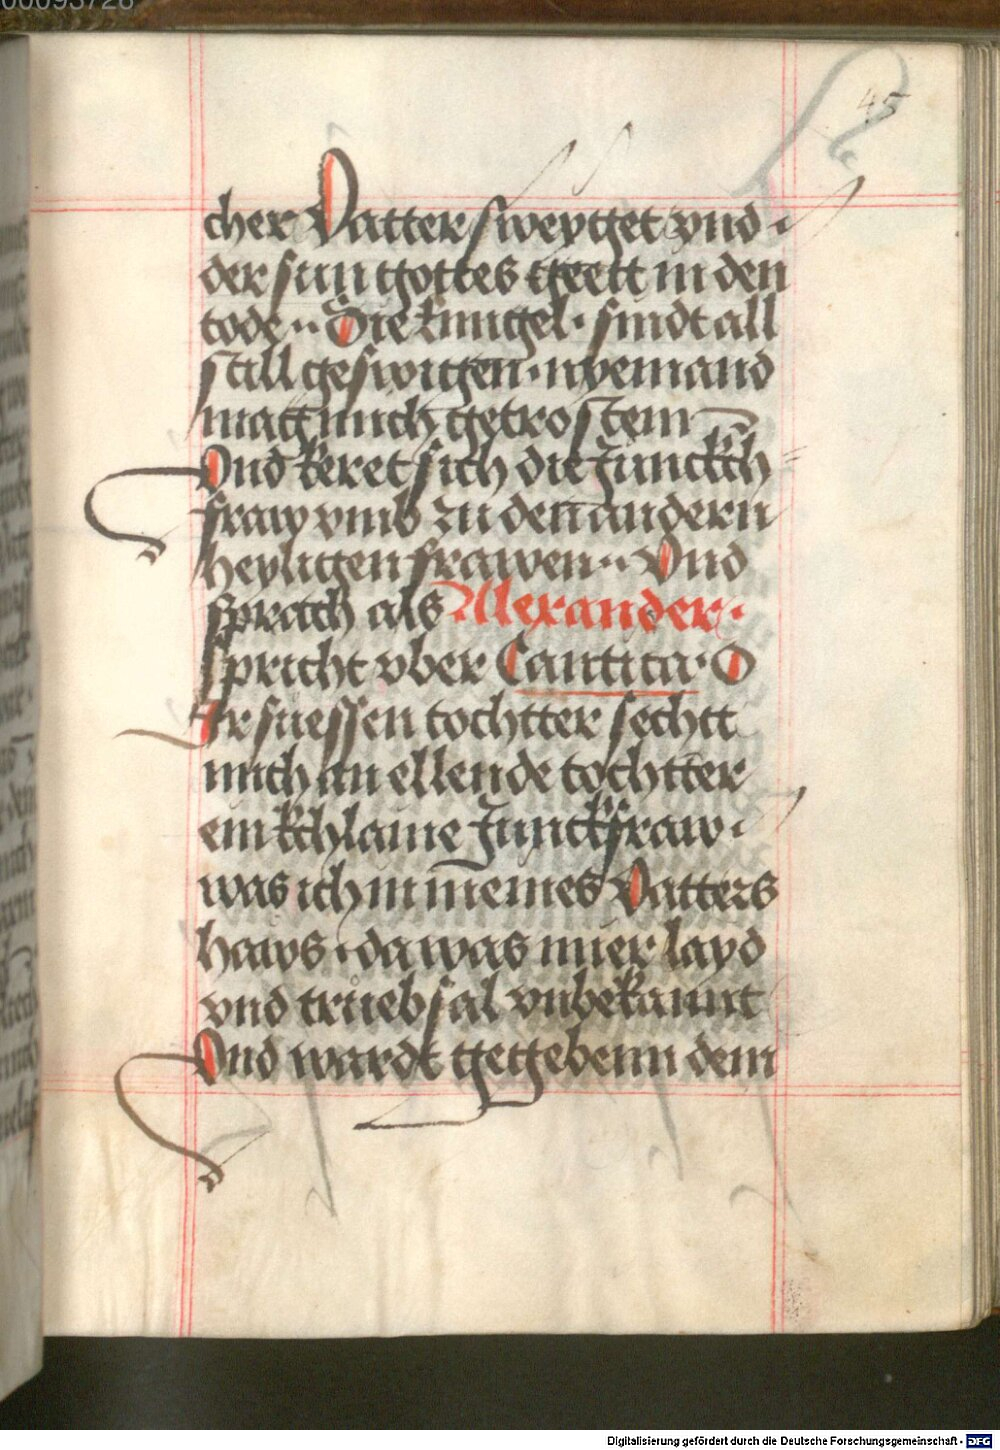 00093728
45
cher Vatter sweyget vnd
der sun gottes geett in den
tode Die Enngel sindt all
still geswigen nyemand
mag mich getrosten
Vnd keret sich die Junckch
fraw vmb zu den andern
heyligen frawen Vnd
sprach als Alexander
spricht vber Cantica O
Ir suessen tochtter sechtt
mich an ellende tochtter
ein kchlaine Junckfraw
was ich in meines Vatters
haws da was mier layd
vnd truebsal vnbekannt
Vnd wardt gegebenn dem
Digitalisierung gefördert durch die Deutsche Forschungsgemeinschaft - DFG